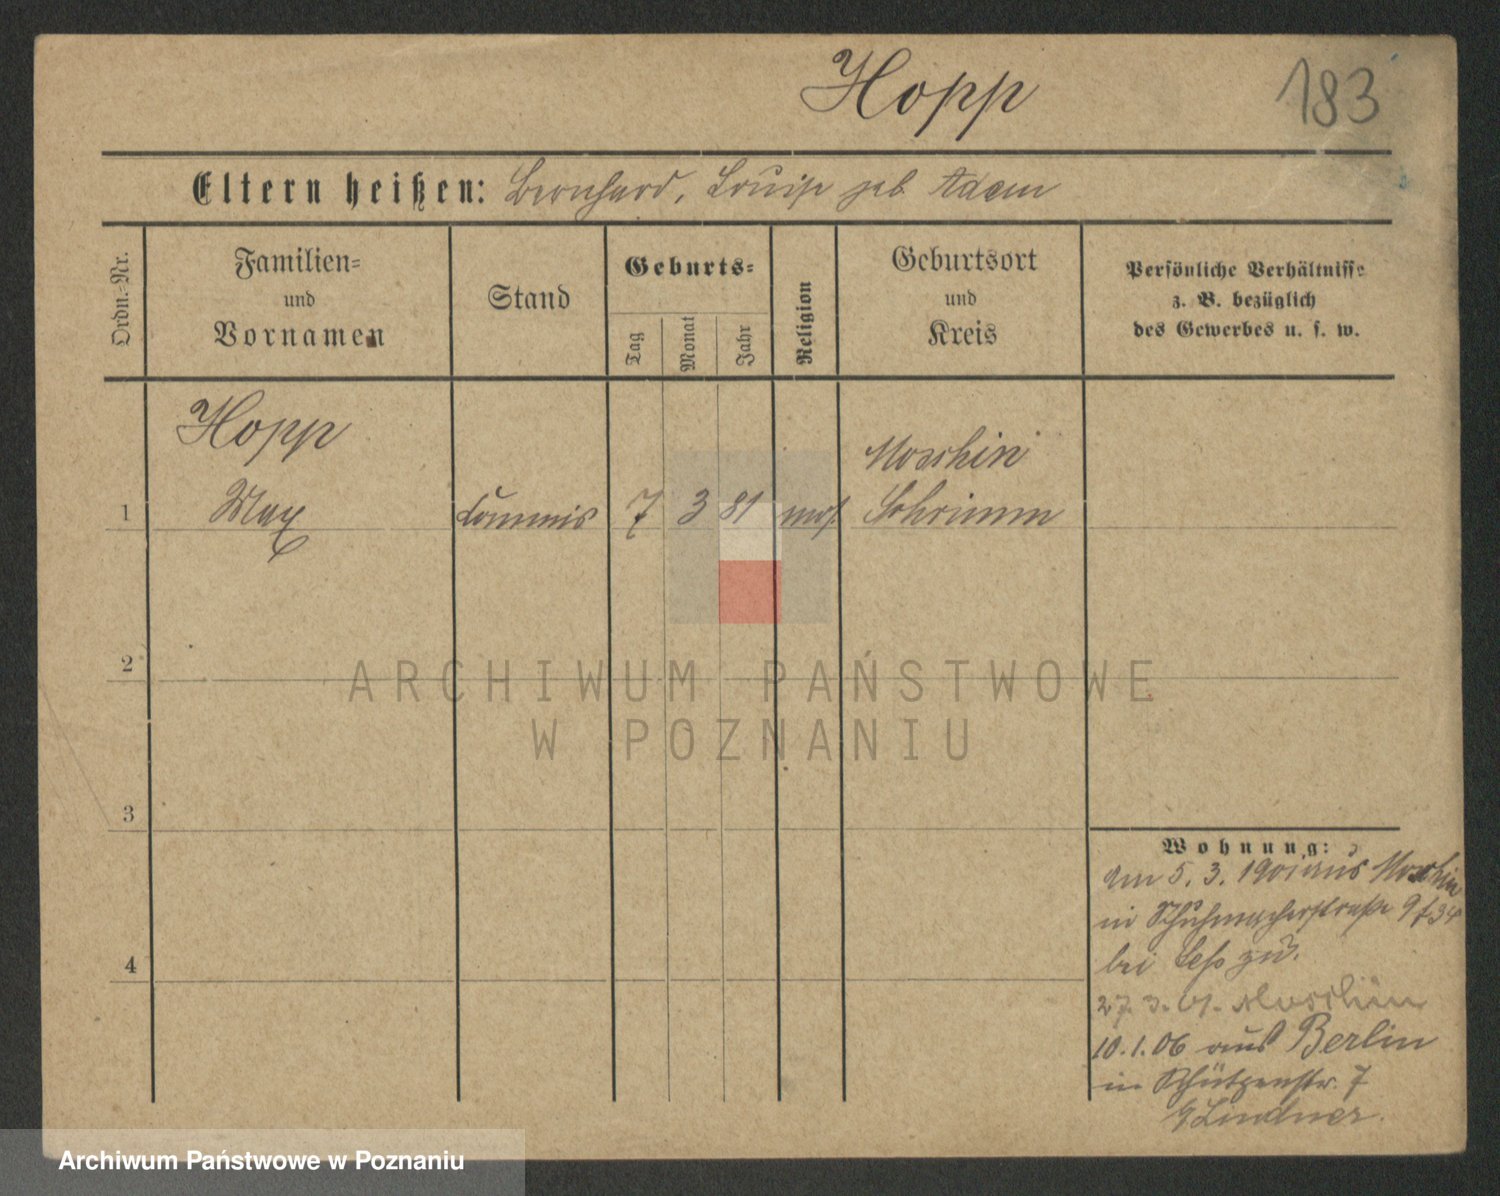 Hopp
183
Eltern heißen: Bernhard, Louise geb Adam
Ordn.-Nr.
Familien-
und
Vornamen
Stand
Geburts-
Tag
Monat
Jahr
Religion
Geburtsort
und
Kreis
Persönliche Verhältnisse
z. B. bezüglich
des Gewerbes u. s. w.
Hopp
Moschin
1 Max Commis 7 3 81 mos. Schrimm
2
ARCHIWUM PAŃSTWOWE
W POZNANIU
3
Wohnung:
am 5. 3. 1901 aus Moschin
in Schuhmacherstraße
bei zu.
4
27. 3. 01. Moschin
10.1.06 aus Berlin
in Schützenstr. 7
Lindner.
Archiwum Państwowe w Poznaniu